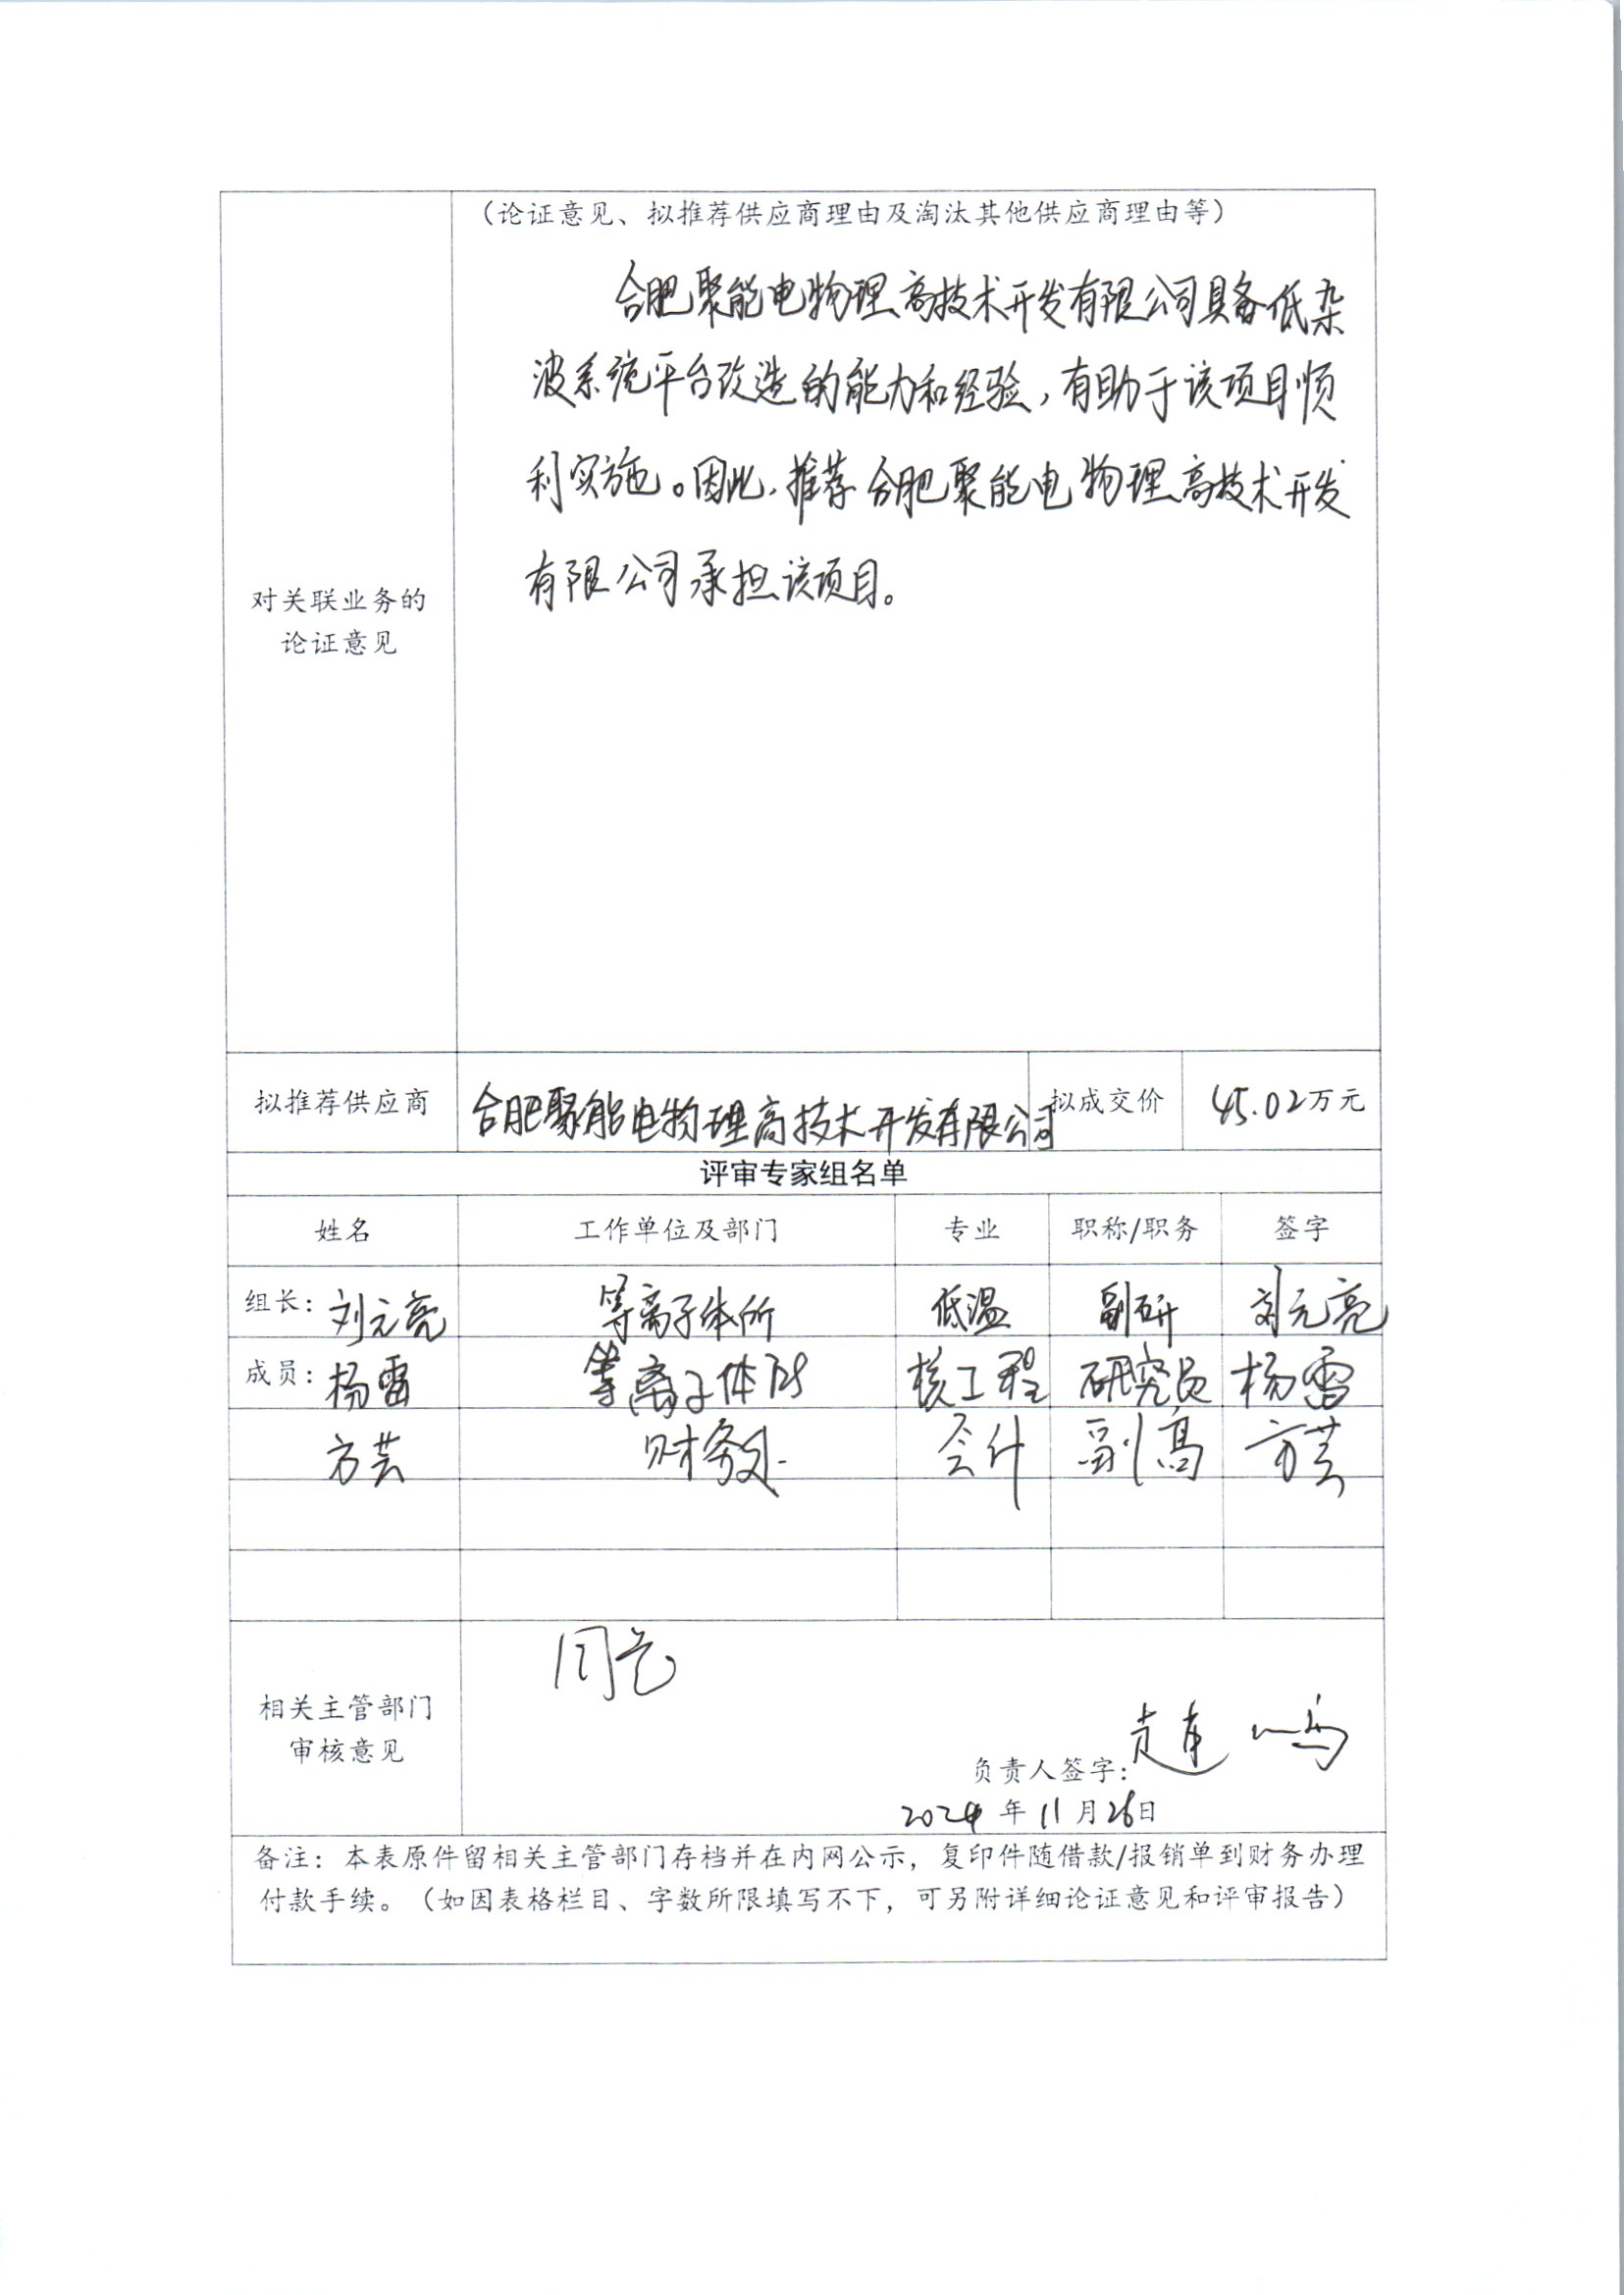 （论证意见、拟推荐供应商理由及淘汰其他供应商理由等）
合肥聚能电物理高技术开发有限公司具备低杂
波系统平台改造的能力和经验，有助于该项目顺
利实施。因此，推荐合肥聚能电物理高技术开发
有限公司承担该项目。
对关联业务的
论证意见
拟推荐供应商 合肥聚能电物理高技术开发有限公司 拟成交价 45.02万元
评审专家组名单
姓名 工作单位及部门 专业 职称/职务 签字
组长：刘元亮 等离子体所 低温 副研 刘元亮
成员：杨雷 等离子体所 核工程 研究员 杨雷
方芸 财务处 会计 副高 方芸
同意
相关主管部门
审核意见
负责人签字：
2024年11月26日
备注：本表原件留相关主管部门存档并在内网公示，复印件随借款/报销单到财务办理
付款手续。（如因表格栏目、字数所限填写不下，可另附详细论证意见和评审报告）